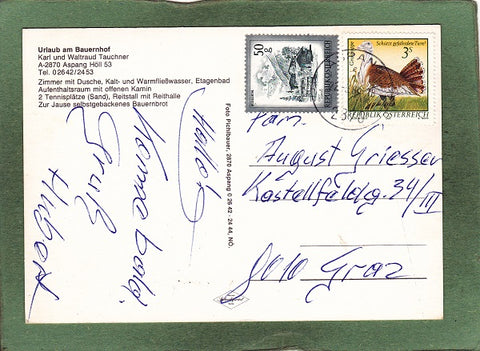 Urlaub am Bauernhof
Karl und Waltraud Tauchner
A-2870 Aspang Höll 53
Tel. 02642/2453
Zimmer mit Dusche, Kalt- und Warmfließwasser, Etagenbad
Aufenthaltsraum mit offenen Kamin
2 Tennisplätze (Sand), Reitstall mit Reithalle
Zur Jause selbstgebackenes Bauernbrot
Hallo
Komme bald.
Gruß
Hubert
Foto Pichlbauer, 2870 Aspang 0 26 42 - 24 44, NÖ.
50 g
REPUBLIK ÖSTERREICH
Schützt gefährdete Tiere!
3 S
REPUBLIK ÖSTERREICH
Fam.
August Griesser
Kastellfeldg. 34/III
8010 Graz